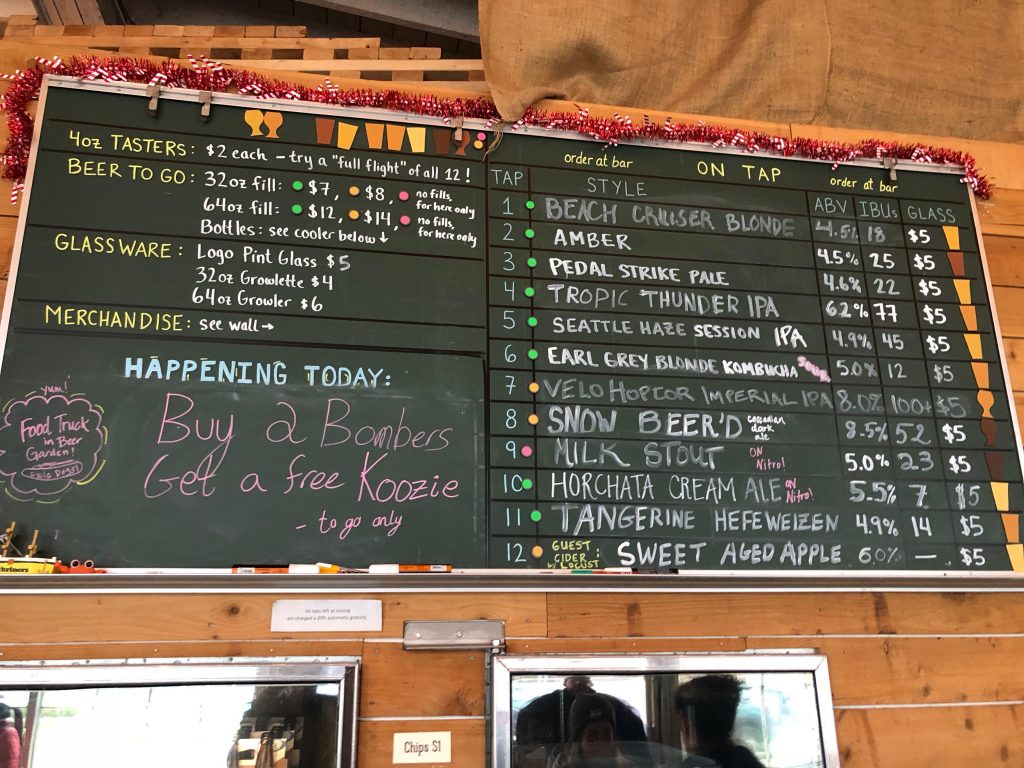 4oz TASTERS: $2 each - try a "full flight" of all 12!
BEER TO GO: 32oz fill: $7, $8, no fills, for here only
64oz fill: $12, $14, no fills, for here only
Bottles: see cooler below ↓
GLASSWARE: Logo Pint Glass $5
32oz Growlette $4
64oz Growler $6
MERCHANDISE: see wall →
HAPPENING TODAY:
Buy 2 Bombers
Get a free Koozie
- to go only
yum!
Food Truck
in Beer
Garden!
order at bar ON TAP order at bar
TAP STYLE ABV IBUs GLASS
1 BEACH CRUISER BLONDE 4.5% 18 $5
2 AMBER 4.5% 25 $5
3 PEDAL STRIKE PALE 4.6% 22 $5
4 TROPIC THUNDER IPA 6.2% 77 $5
5 SEATTLE HAZE SESSION IPA 4.9% 45 $5
6 EARL GREY BLONDE KOMBUCHA SOUR 5.0% 12 $5
7 VELO HOPTOR IMPERIAL IPA 8.0% 100+ $5
8 SNOW BEER'D cascadian dark ale 8.5% 52 $5
9 MILK STOUT ON Nitro! 5.0% 23 $5
10 HORCHATA CREAM ALE ON Nitro! 5.5% 7 $5
11 TANGERINE HEFEWEIZEN 4.9% 14 $5
12 GUEST CIDER: w/ LOCUST SWEET AGED APPLE 6.0% — $5
All tabs left at closing
are charged a 20% automatic gratuity.
Chips $1